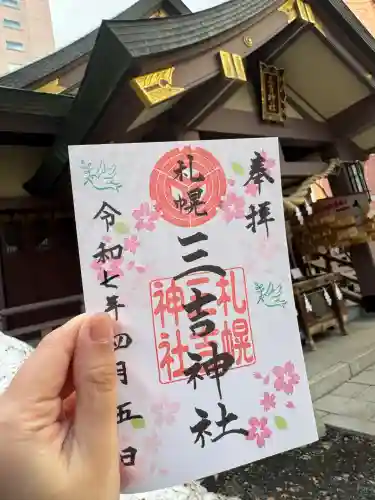 奉拝
札幌
三吉神社
札幌
三吉
神社
令和七年四月五日